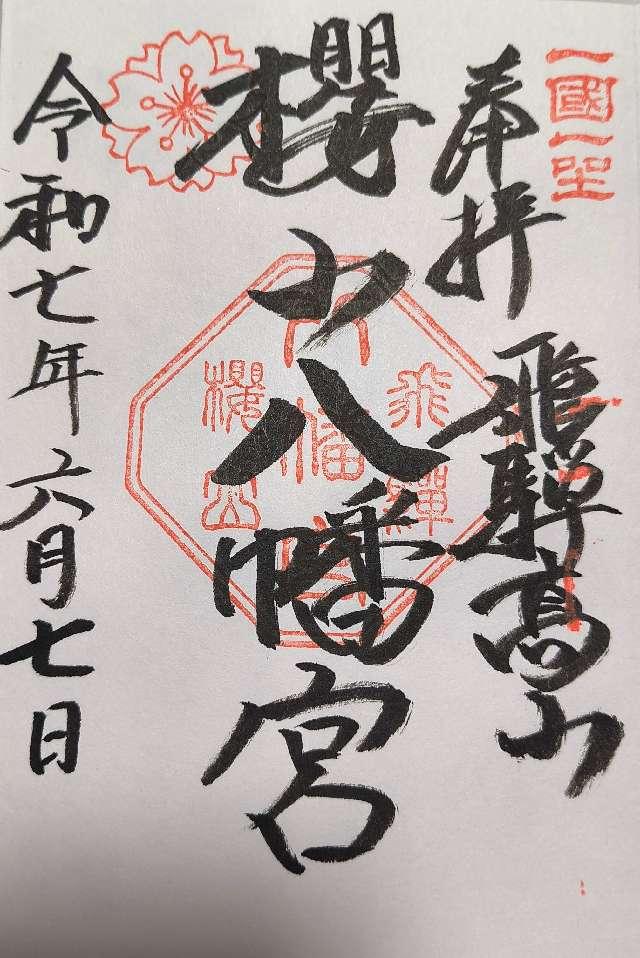 一國一社
奉拝
飛騨高山
櫻山八幡宮
飛騨
八幡宮
櫻山
令和七年六月七日